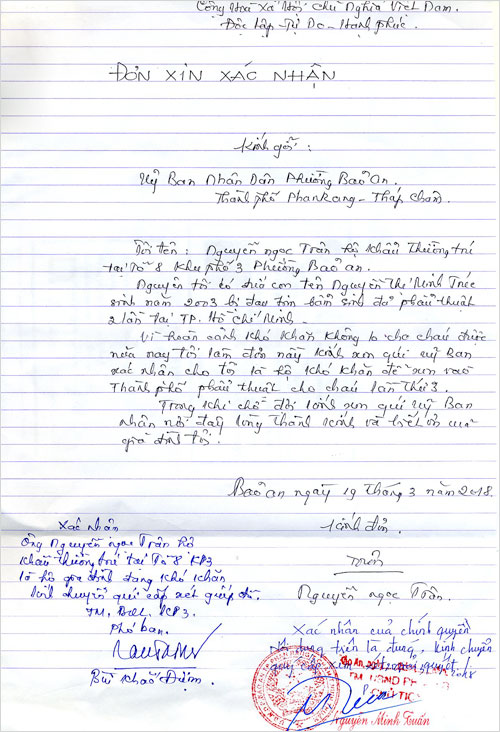 Cộng Hoà Xã Hội Chủ Nghĩa Việt Nam.
Độc lập - Tự Do - Hạnh phúc.
ĐƠN XIN XÁC NHẬN
Kính gởi :
Uỷ Ban Nhân Dân Phường Bảo An.
Thành phố PhanRang - Tháp Chàm.
Tôi tên : Nguyễn Ngọc Trân hộ khẩu Thường trú
tại Tổ 8 Khu phố 3 Phường Bảo an.
Nguyên tôi có đứa con tên Nguyễn Thị Minh Trúc
sinh năm 2003 bị đau tim bẩm sinh đã phẩu thuật
2 lần tại TP. Hồ Chí Minh.
Vì hoàn cảnh khó khăn không lo cho cháu được
nữa nay tôi làm đơn này kính xin quí uỷ ban
xác nhận cho tôi là hộ khó khăn để xin vào
Thành phố phẩu thuật cho cháu lần thứ 3.
Trong khi chờ đợi kính xin quí Uỷ Ban
nhân nơi đây lòng thành kính và biết ơn của
gia đình tôi.
Bảo an ngày 19 tháng 3 năm 2018.
Kính đơn.
Nguyễn Ngọc Trân.
Xác nhận
Ông Nguyễn Ngọc Trân hộ
khẩu thường trú tại Tổ 8 KP3
là hộ gia đình đang khó khăn
kính chuyển quí cấp xét giúp đỡ.
TM, BQL KP3.
Phó ban.
Bùi Khắc Điểm.
Xác nhận của chính quyền
Nội dung trên là đúng, kính chuyển
quý cấp xem xét, giải quyết
TM. UBND
CHỦ TỊCH
Nguyễn Minh Tuấn